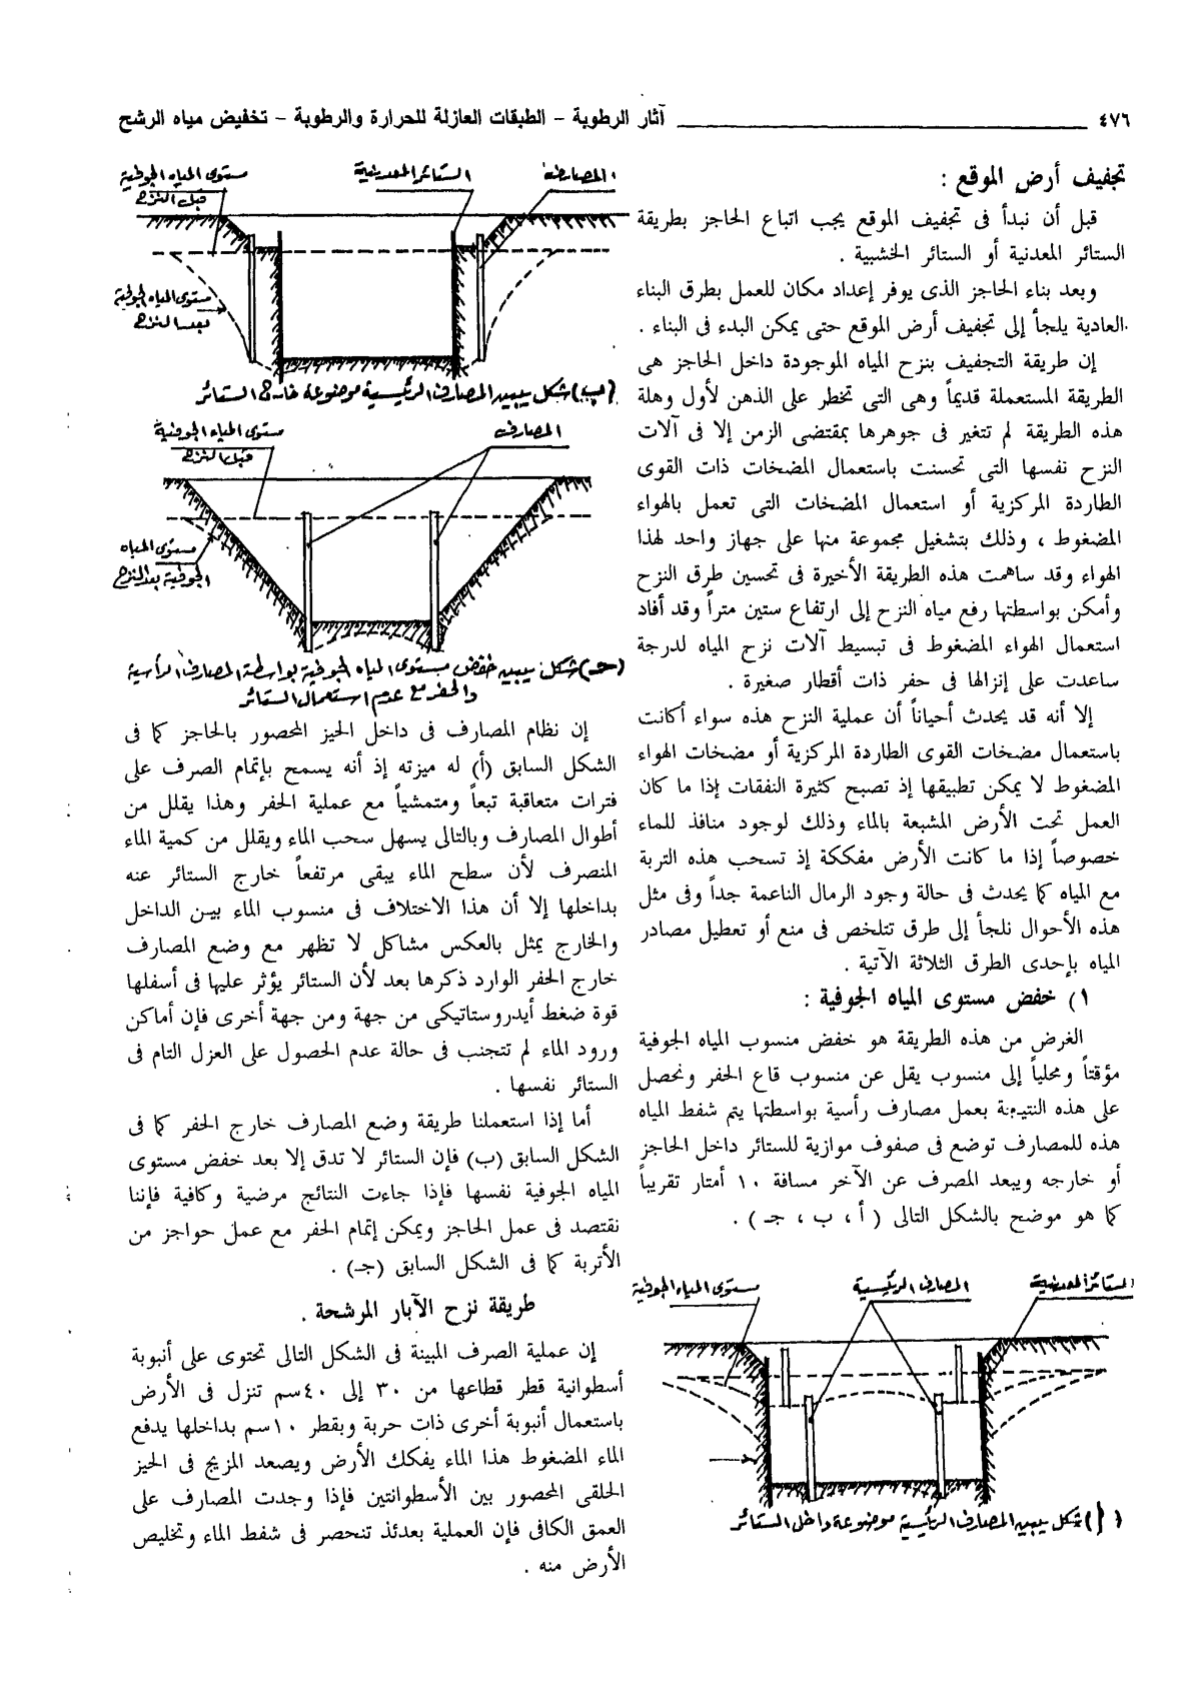 ٤٧٦ آثار الرطوبة – الطبقات العازلة للحرارة والرطوبة – تخفيض مياه الرشح
تجفيف أرض الموقع :
قبل أن نبدأ فى تجفيف الموقع يجب اتباع الحاجز بطريقة
الستائر المعدنية أو الستائر الخشبية .
وبعد بناء الحاجز الذى يوفر إعداد مكان للعمل بطرق البناء
العادية يلجأ إلى تجفيف أرض الموقع حتى يمكن البدء فى البناء .
إن طريقة التجفيف بنزح المياه الموجودة داخل الحاجز هى
الطريقة المستعملة قديماً وهى التى تخطر على الذهن لأول وهلة
هذه الطريقة لم تتغير فى جوهرها بمقتضى الزمن إلا فى آلات
النزح نفسها التى تحسنت باستعمال المضخات ذات القوى
الطاردة المركزية أو استعمال المضخات التى تعمل بالهواء
المضغوط ، وذلك بتشغيل مجموعة منها على جهاز واحد لهذا
الهواء وقد ساهمت هذه الطريقة الأخيرة فى تحسين طرق النزح
وأمكن بواسطتها رفع مياه النزح إلى ارتفاع ستين متراً وقد أفاد
استعمال الهواء المضغوط فى تبسيط آلات نزح المياه لدرجة
ساعدت على إنزالها فى حفر ذات أقطار صغيرة .
إلا أنه قد يحدث أحياناً أن عملية النزح هذه سواء أكانت
باستعمال مضخات القوى الطاردة المركزية أو مضخات الهواء
المضغوط لا يمكن تطبيقها إذ تصبح كثيرة النفقات إذا ما كان
العمل تحت الأرض المشبعة بالماء وذلك لوجود منافذ للماء
خصوصاً إذا ما كانت الأرض مفككة إذ تسحب هذه التربة
مع المياه كما يحدث فى حالة وجود الرمال الناعمة جداً وفى مثل
هذه الأحوال نلجأ إلى طرق تتلخص فى منع أو تعطيل مصادر
المياه بإحدى الطرق الثلاثة الآتية .
١) خفض مستوى المياه الجوفية :
الغرض من هذه الطريقة هو خفض منسوب المياه الجوفية
مؤقتاً ومحلياً إلى منسوب يقل عن منسوب قاع الحفر ونحصل
على هذه النتيجة بعمل مصارف رأسية بواسطتها يتم شفط المياه
هذه للمصارف توضع فى صفوف موازية للستائر داخل الحاجز
أو خارجه ويبعد المصرف عن الآخر مسافة ١٠ أمتار تقريباً
كما هو موضح بالشكل التالى ( أ ، ب ، جـ ) .
الستائر المعدنية
المصارف الرئيسية
مستوى المياه الجوفية
( أ ) شكل يبين المصارف الرئيسية موضوعة داخل الستائر
المصارف
الستائر المعدنية
مستوى المياه الجوفية
قبل النزح
مستوى المياه الجوفية
بعد النزح
(ب) شكل يبين المصارف الرئيسية موضوعة خارج الستائر
المصارف
مستوى المياه الجوفية
قبل النزح
مستوى المياه
الجوفية بعد النزح
(جـ) شكل يبين خفض مستوى المياه الجوفية بواسطة المصارف الرأسية
والحفر مع عدم استعمال الستائر
إن نظام المصارف فى داخل الحيز المحصور بالحاجز كما فى
الشكل السابق (أ) له ميزته إذ أنه يسمح بإتمام الصرف على
فترات متعاقبة تبعاً ومتمشياً مع عملية الحفر وهذا يقلل من
أطوال المصارف وبالتالى يسهل سحب الماء ويقلل من كمية الماء
المنصرف لأن سطح الماء يبقى مرتفعاً خارج الستائر عنه
بداخلها إلا أن هذا الاختلاف فى منسوب الماء بين الداخل
والخارج يمثل بالعكس مشاكل لا تظهر مع وضع المصارف
خارج الحفر الوارد ذكرها بعد لأن الستائر يؤثر عليها فى أسفلها
قوة ضغط أيدروستاتيكى من جهة ومن جهة أخرى فإن أماكن
ورود الماء لم تتجنب فى حالة عدم الحصول على العزل التام فى
الستائر نفسها .
أما إذا استعملنا طريقة وضع المصارف خارج الحفر كما فى
الشكل السابق (ب) فإن الستائر لا تدق إلا بعد خفض مستوى
المياه الجوفية نفسها فإذا جاءت النتائج مرضية وكافية فإننا
نقتصد فى عمل الحاجز ويمكن إتمام الحفر مع عمل حواجز من
الأتربة كما فى الشكل السابق (جـ) .
طريقة نزح الآبار المرشحة .
إن عملية الصرف المبينة فى الشكل التالى تحتوى على أنبوبة
أسطوانية قطر قطاعها من ٣٠ إلى ٤٠سم تنزل فى الأرض
باستعمال أنبوبة أخرى ذات حربة وبقطر ١٠سم بداخلها يدفع
الماء المضغوط هذا الماء يفكك الأرض ويصعد المزيج فى الحيز
الحلقى المحصور بين الأسطوانتين فإذا وجدت المصارف على
العمق الكافى فإن العملية بعدئذ تنحصر فى شفط الماء وتخليص
الأرض منه .